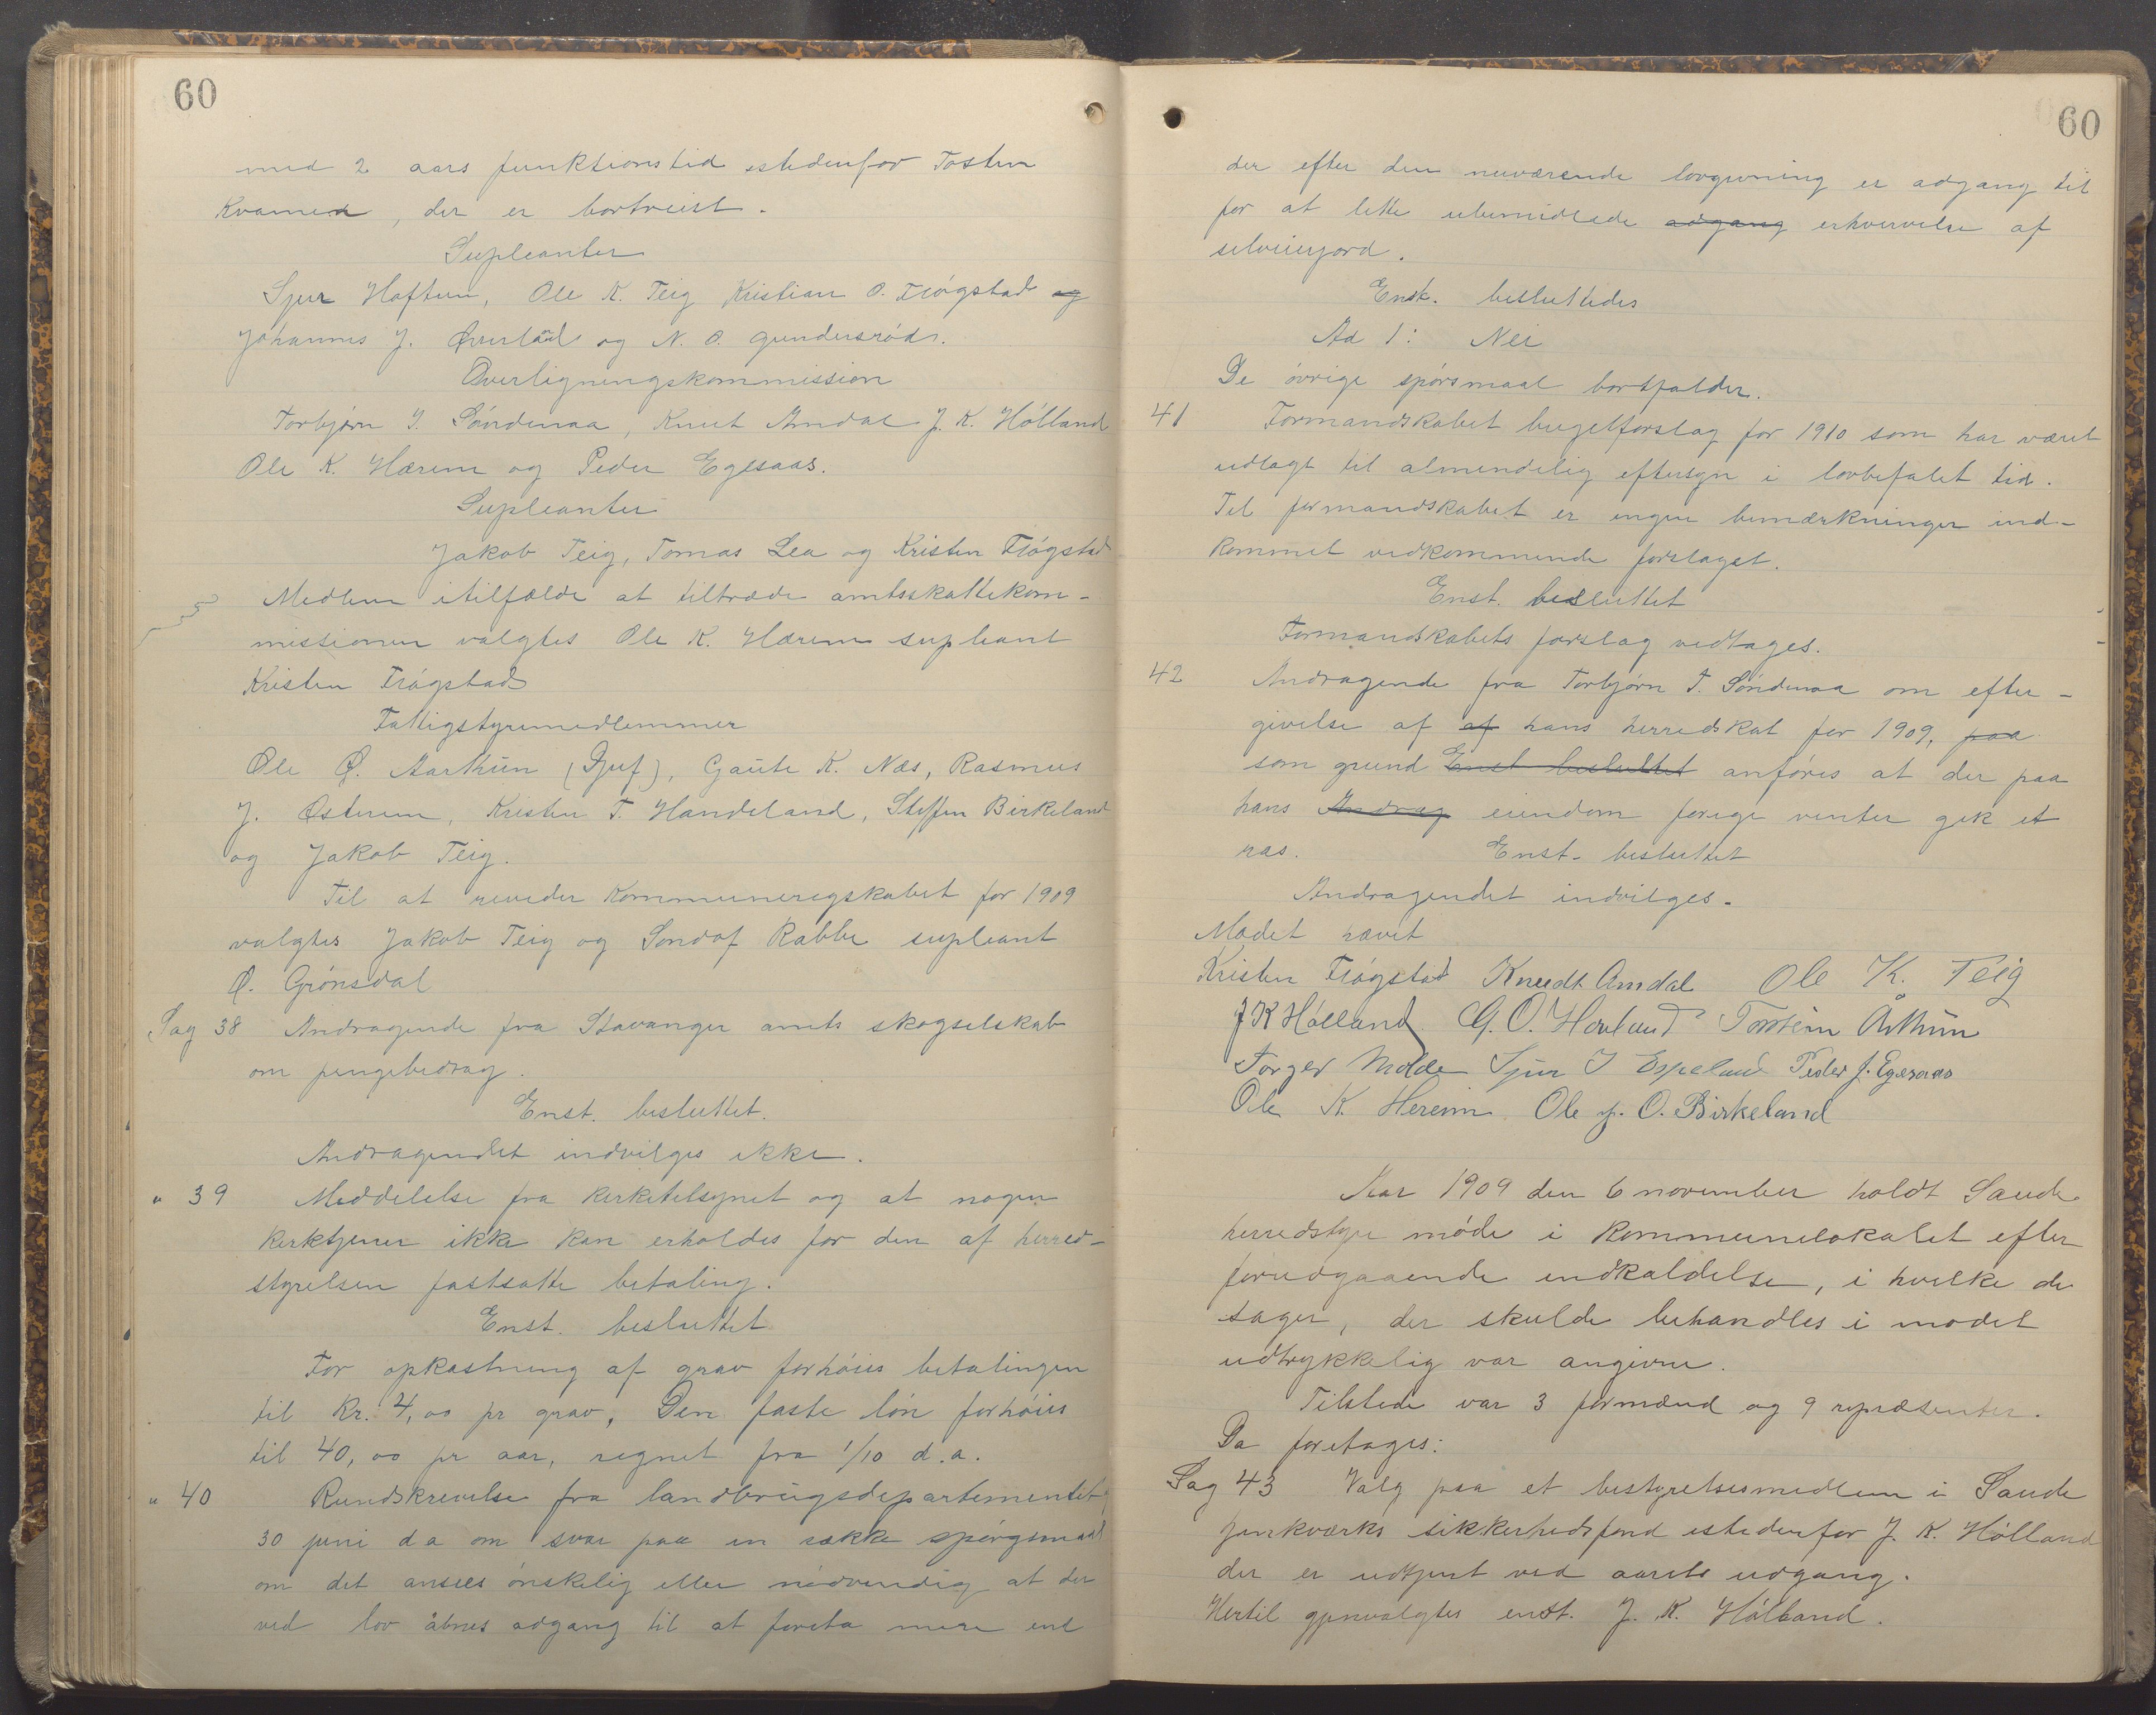 60
med 2 aars funktionstid istedenfor Tosten
Kvamen, der er bortreist.
Supleanter
Sjur Haftun, Ole K. Teig Kristian O. Trógstad og
Johannes J. Øverland og N. O. Gundersród.
Overligningskommission
Torbjørn T. Sóndenaa, Knut Amdal J. K. Hólland
Ole K. Hærem og Peder Egesaas.
Supleanter
Jakob Teig, Tomas Lea og Kristen Trógstad
Medlem itilfælde at tiltræde amtsskattekom-
missionen valgtes Ole K. Hærem supleant
Kristen Trógstad
Fattigstyremedlemmer
Ole Ø. Aarthun (Djuf), Gaute K. Næs, Rasmus
J. Østerem, Kristen T. Handeland, Steffen Birkeland
og Jakob Teig.
Til at revider Kommuneregskabet for 1909
valgtes Jakob Teig og Sondof Rabbe supleant
Ø. Grónsdal
Sag 38 Andragende fra Stavanger amts skogselskab
om pengebidrag.
Enst. besluttet.
Andragendet indvilges ikke.
" 39 Meddelelse fra Kirketilsynet og at nogen
kirketjener ikke kan erholdes for den af herred-
styrelsen fastsatte betaling.
Enst. besluttet
For opkastning af grav forhóies betalingen
til Kr. 4,00 pr grav, Den faste lón forhóies
til 40,00 pr aar, regnet fra 1/10 d.a.
" 40 Rundskrivelse fra landbrugsdepartementet
30 juni d a om svar paa en række spórgsmaal
om det ansees ónskelig eller nódvendig at der
ved lov åbnes adgang til at foreta mere end
60
der efter den nuværende lovgivning er adgang til
for at lette ubemidlede adgang erhvervelse af
selveierjord.
Enst. besluttedes
Ad 1: Nei
De óvrige spórsmaal bortfalder.
41 Formandskabet bugetforslag for 1910 som har været
udlagt til almindelig eftersyn i lovbefalet tid.
Til formandskabet er ingen bemærkninger ind-
kommet vedkommende forslaget.
Enst. besluttet
Formandskabets forslag vedtages.
42 Andragende fra Torbjórn T. Sóndenaa om efter-
givelse af af hans herredskat for 1909, paa
som grund Enst besluttet anfóres at der paa
hans Andrag eiendom forige vinter gik et
ras. Enst. besluttet
Andragendet indvilges.
Mødet hævet
Kristen Trógstad Knudt Amdal Ole K. Teig
J K Hólland G. O. Hovland Torstein Årthun
Torger Molde Sjur I Espeland Peder J. Egesaas
Ole K. Herem Ole J. O. Birkeland
Aar 1909 den 6 november holdt Saude
herredstyre móde i Kommunelokalet efter
forudgaaende indkaldelse, i hvilke de
sager, der skulde behandles i mødet
udtrykkelig var angivne.
Tilstede var 3 formænd og 9 repræsenter.
Da foretages:
Sag 43 Valg paa et bestyrelsesmedlem i Saude
junkværks sikkerhedsfond istedenfor J. K. Hólland
der er udtjent ved aarets udgang.
Hertil gjenvalgtes enst. J. K. Hólland.